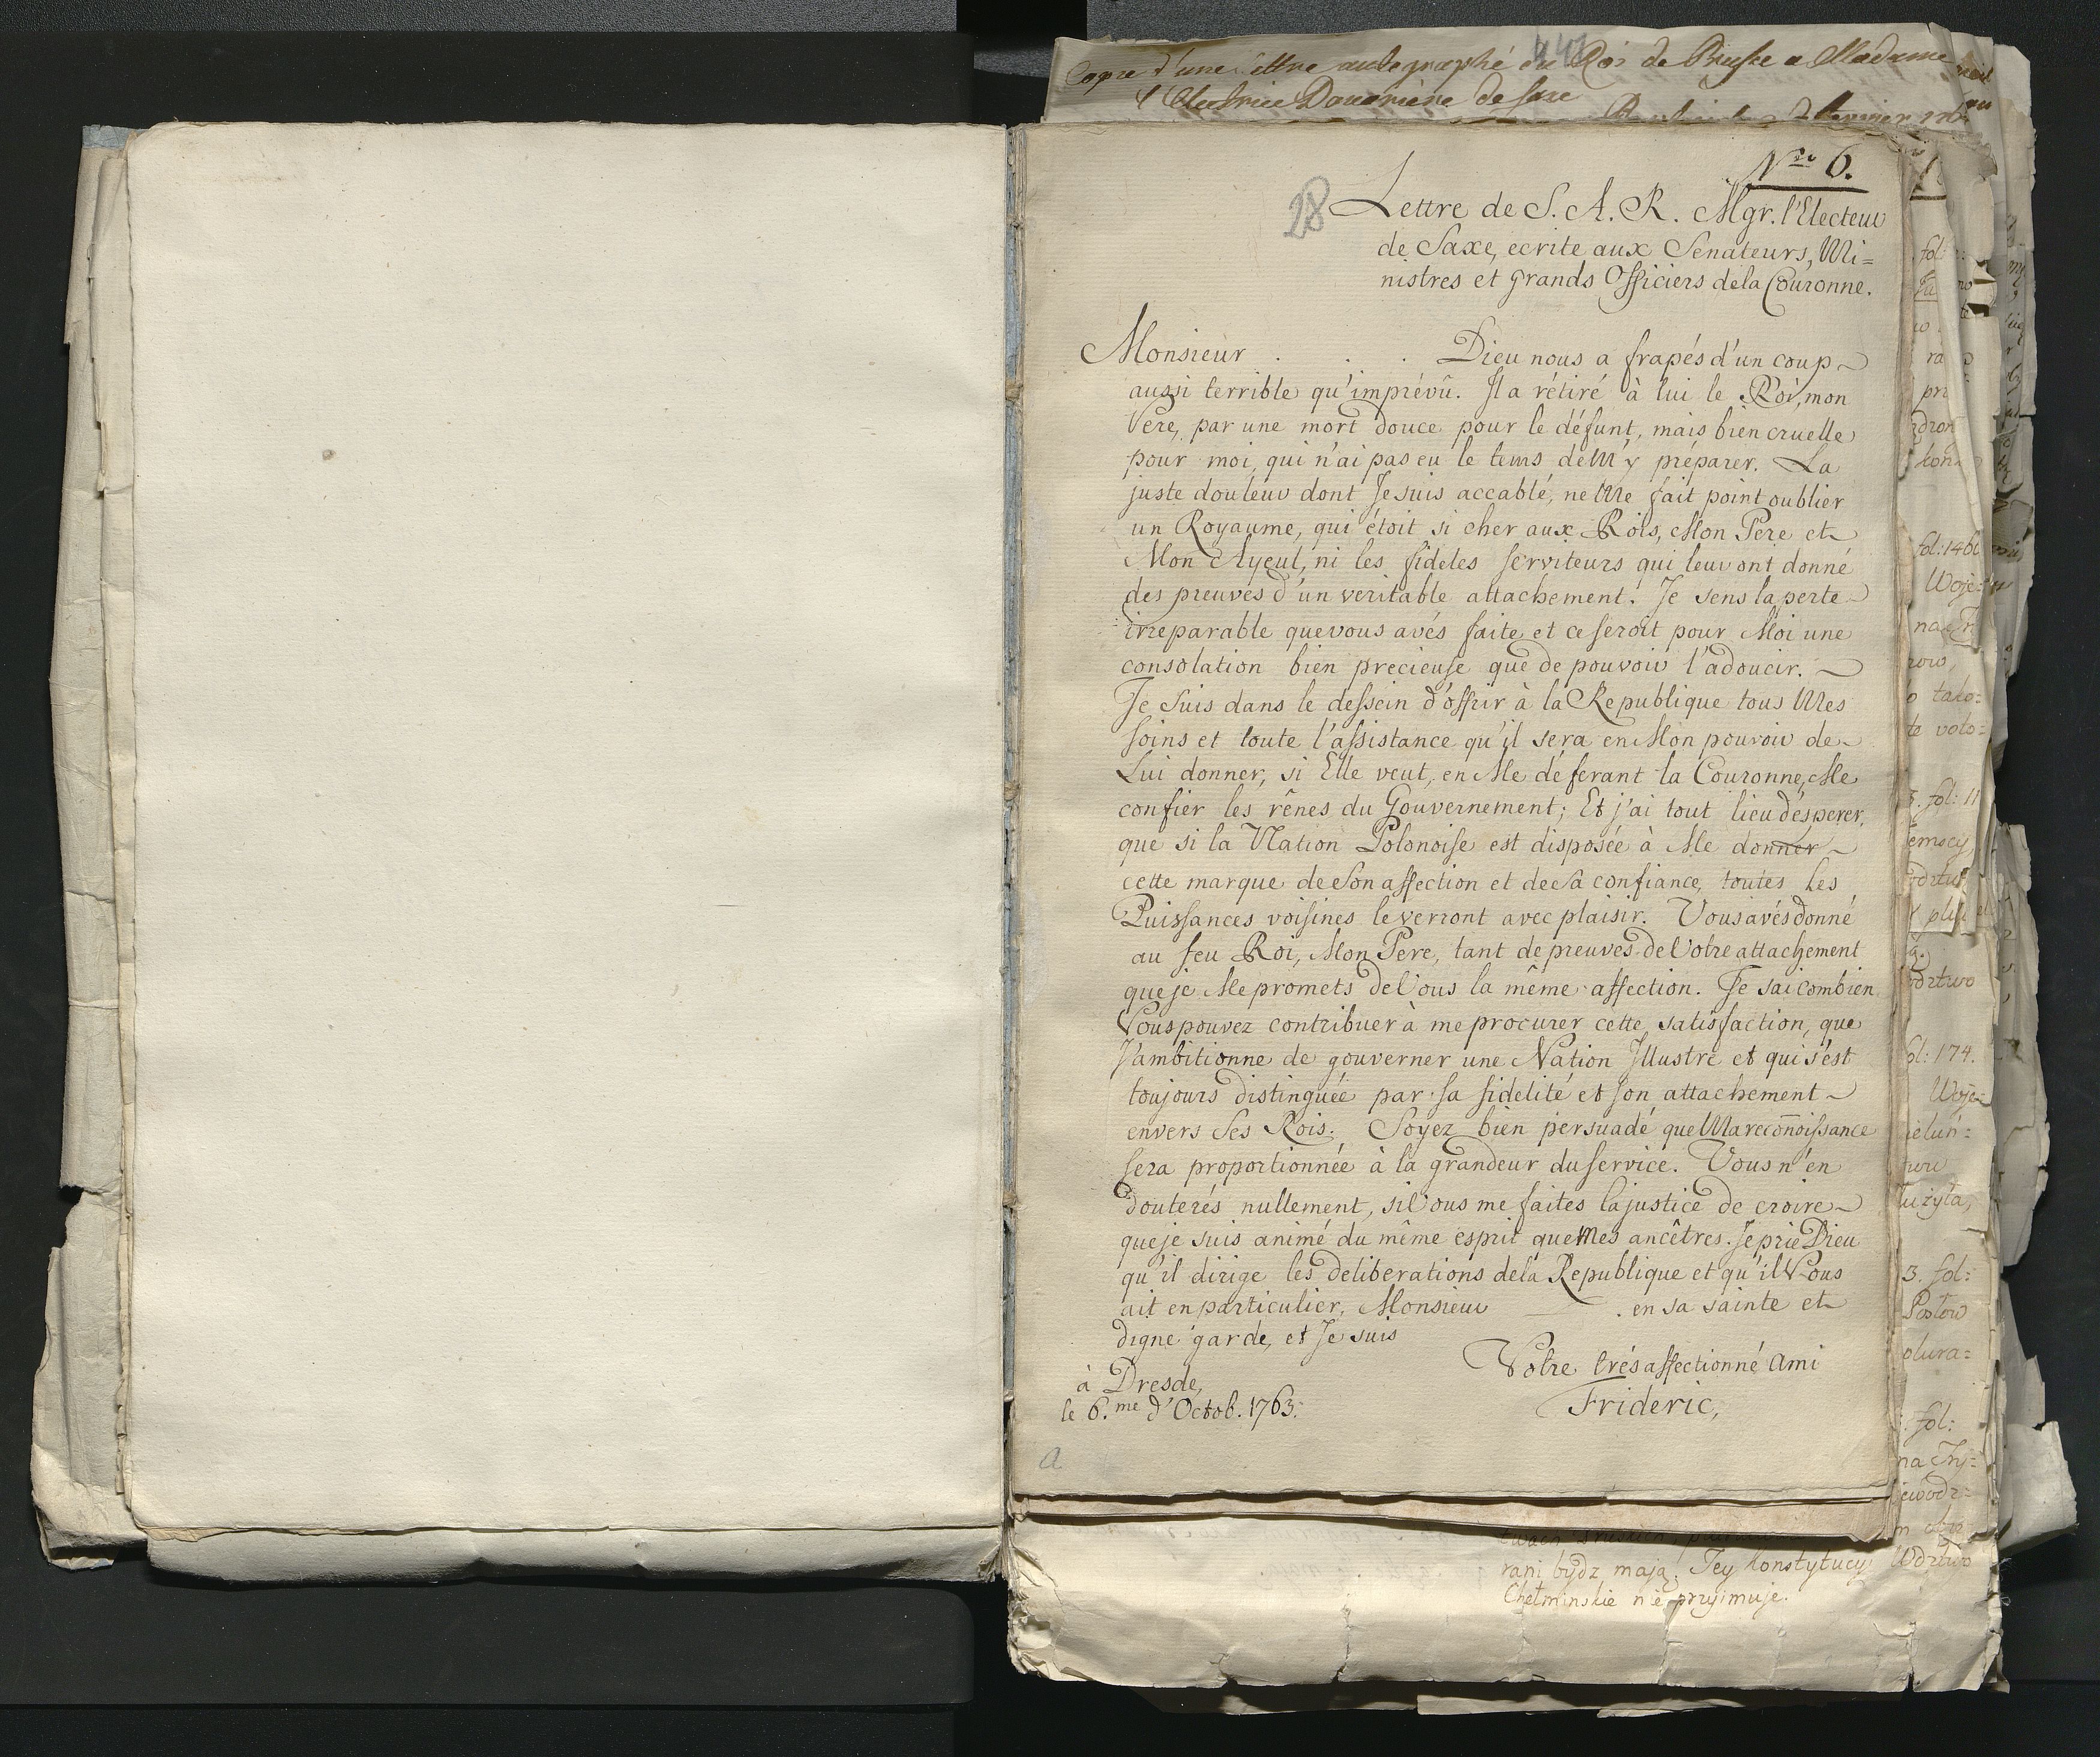 Copie d'une lettre autographé du Roi de Prusse a Madame
l'Electrice Douariere de Saxe
Nro 6.
28
Lettre de S. A. R. Mgr. l'Electeur
de Saxe, ecrite aux Senateurs, Mi=
nistres et grands Officiers de la Couronne.
Monsieur . . . Dieu nous a frapés d'un coup
aussi terrible qu'imprévû. Il a rétiré à lui le Roi, mon
Pere, par une mort douce pour le défunt, mais bien cruelle
pour moi, qui n'ai pas eu le tems de M'y préparer. La
juste douleur dont Je suis accablé, ne Me fait point oublier
un Royaume, qui étoit si cher aux Rois, Mon Pere et
Mon Ayeul, ni les fideles serviteurs qui leur ont donné
des preuves d'un veritable attachement. Je sens la perte
irreparable que vous avés faite et ce seroit pour Moi une
consolation bien precieuse que de pouvoir l'adoucir.
Je suis dans le dessein d'offrir à la Republique tous Mes
soins et toute l'assistance qu'il sera en Mon pouvoir de
Lui donner, si Elle veut, en Me déferant la Couronne, Me
confier les rênes du Gouvernement; Et j'ai tout lieu d'ésperer,
que si la Nation Polonoise est disposée à Me donner
cette marque de Son affection et de Sa confiance, toutes les
Puissances voisines le verront avec plaisir. Vous avés donné
au feu Roi, Mon Pere, tant de preuves de Votre attachement
que je Me promets de Vous la même affection. Je sai combien
Vous pouvez contribuer à me procurer cette satisfaction, que
J'ambitionne de gouverner une Nation Illustre et qui s'est
toujours distinguée par sa fidelité et son attachement
envers Ses Rois. Soyez bien persuadé que Ma reconnoissance
sera proportionnée à la grandeur du service. Vous n'en
douterés nullement, si Vous me faites la justice de croire
que je suis animé du même esprit que Mes ancêtres. Je prie Dieu
qu'il dirige les deliberations de la Republique et qu'il Vous
ait en particulier, Monsieur . en sa sainte et
digne garde, et Je suis
Votre trés affectionné Ami
Frideric,
à Dresde,
le 6.me d'Octob. 1763.
a
rani bydz mają. Tey konstytucyi Wdztwo
Chełminskie nie przyimuje.